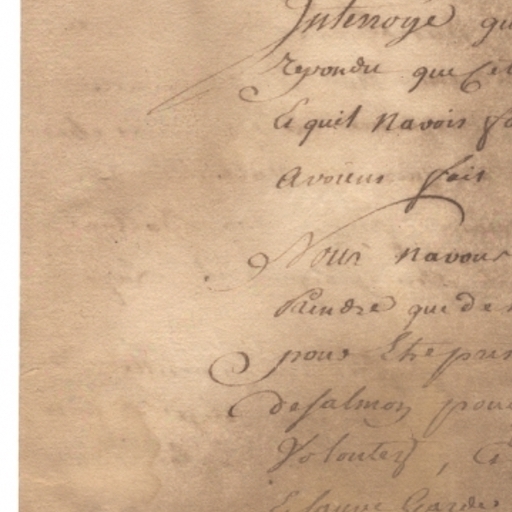 Interrogé qu
repondu que Cet
Et quil navois fa
avoient fait
Nous navons
Rendre que de
pour Etre pre
de salmon pou
Volontez, et